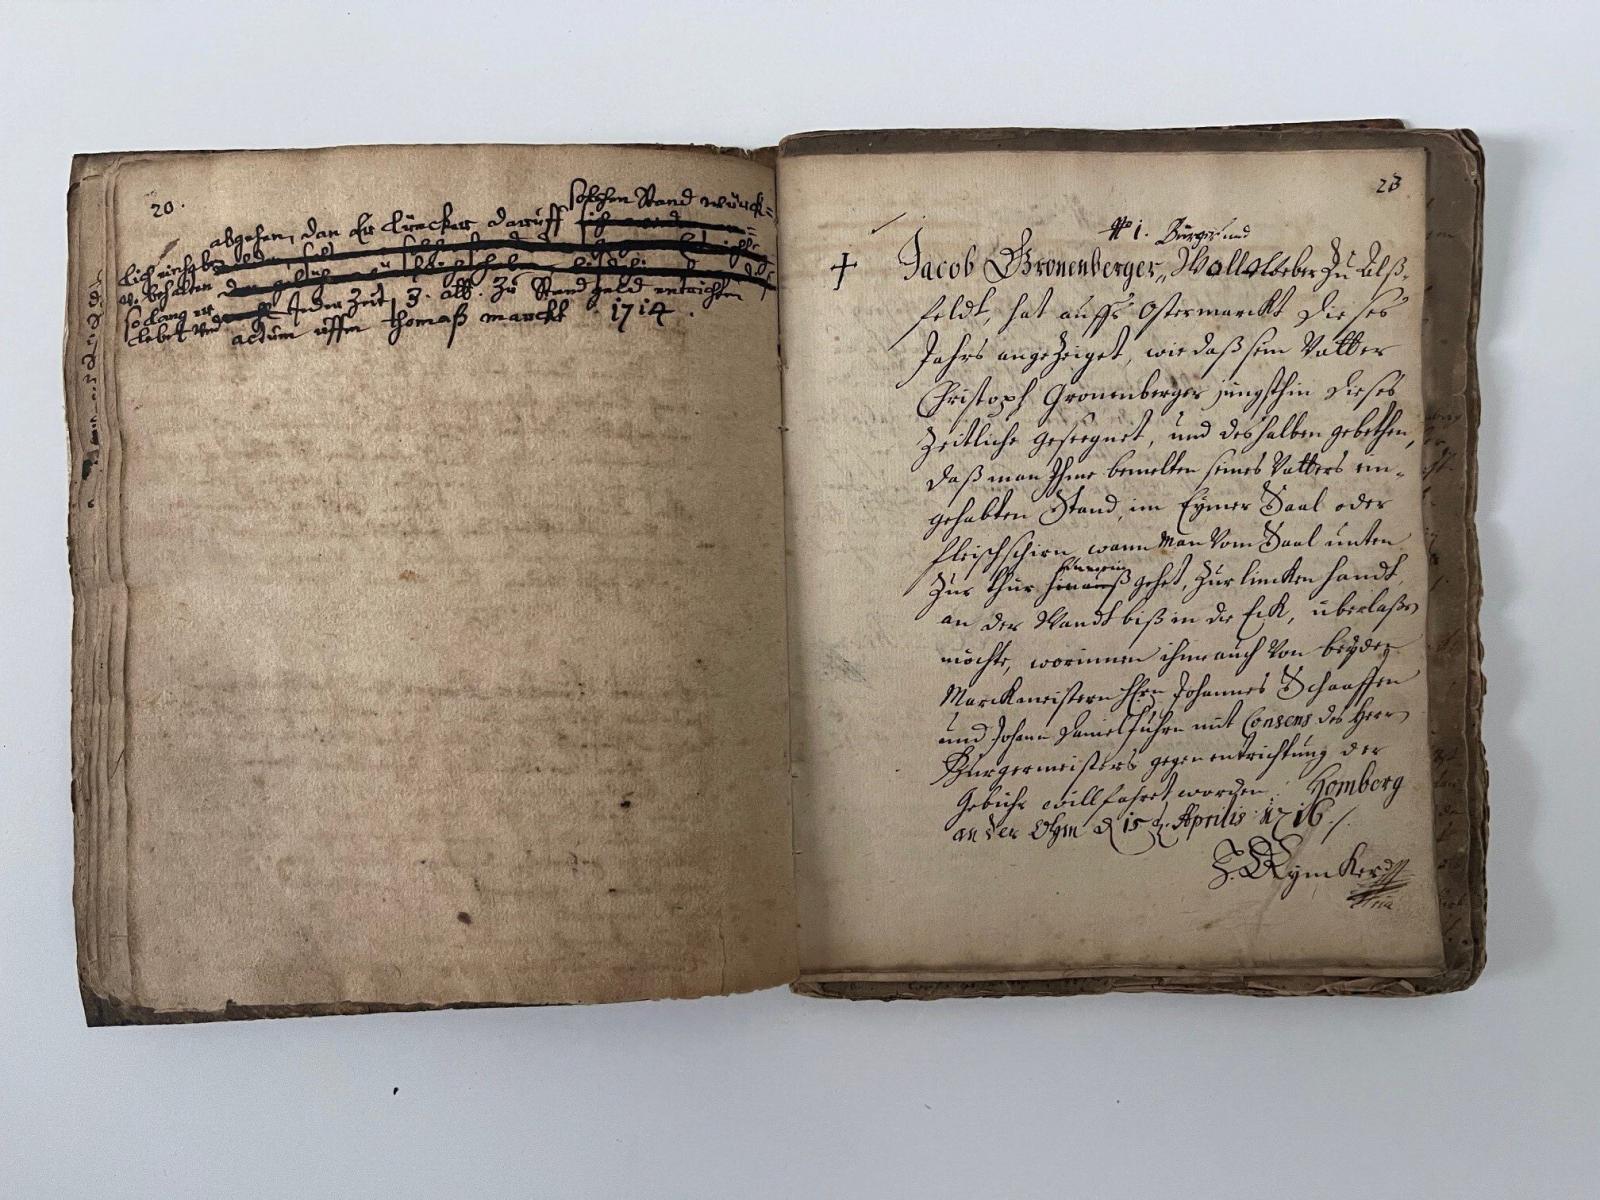 20.
solchen Stand würck=
abgehen, dan Er Lüecker daruff
lich
behalten
solang er
lebet und Jeder Zeit 3. alb. Zu Stand geld entrichten
actum uffm thomaß marckt 1714.
23
No 1. Bürger und
Jacob Gronenberger, Wollweber Zu Alß-
feldt, hat auffs Ostermarckt dieses
Jahrs angezeiget, wie daß sein Vatter
Christoph Gronenberger jüngsthin dieses
Zeitliche geseegnet, und deshalben gebethen,
daß man Ihme bemelten seines Vatters ein-
gehabten Stand, im Eymer Saal oder
fleischschirn, wann man Vom Saal unten
hinnein
Zur thür hinauß gehet, Zur lincken handt,
an der Wandt biß in die Eck, überlaßen
möchte, worinnen ihme auch Von beyden
Marckmeistern HErrn Johannes Schaaffen
und Johann Daniel führn mit Consens des Herrn
Burgermeisters gegen entrichtung der
Gebühr willfahret worden. Homberg
an der Ohm d 15 t. Aprilis 1716./.